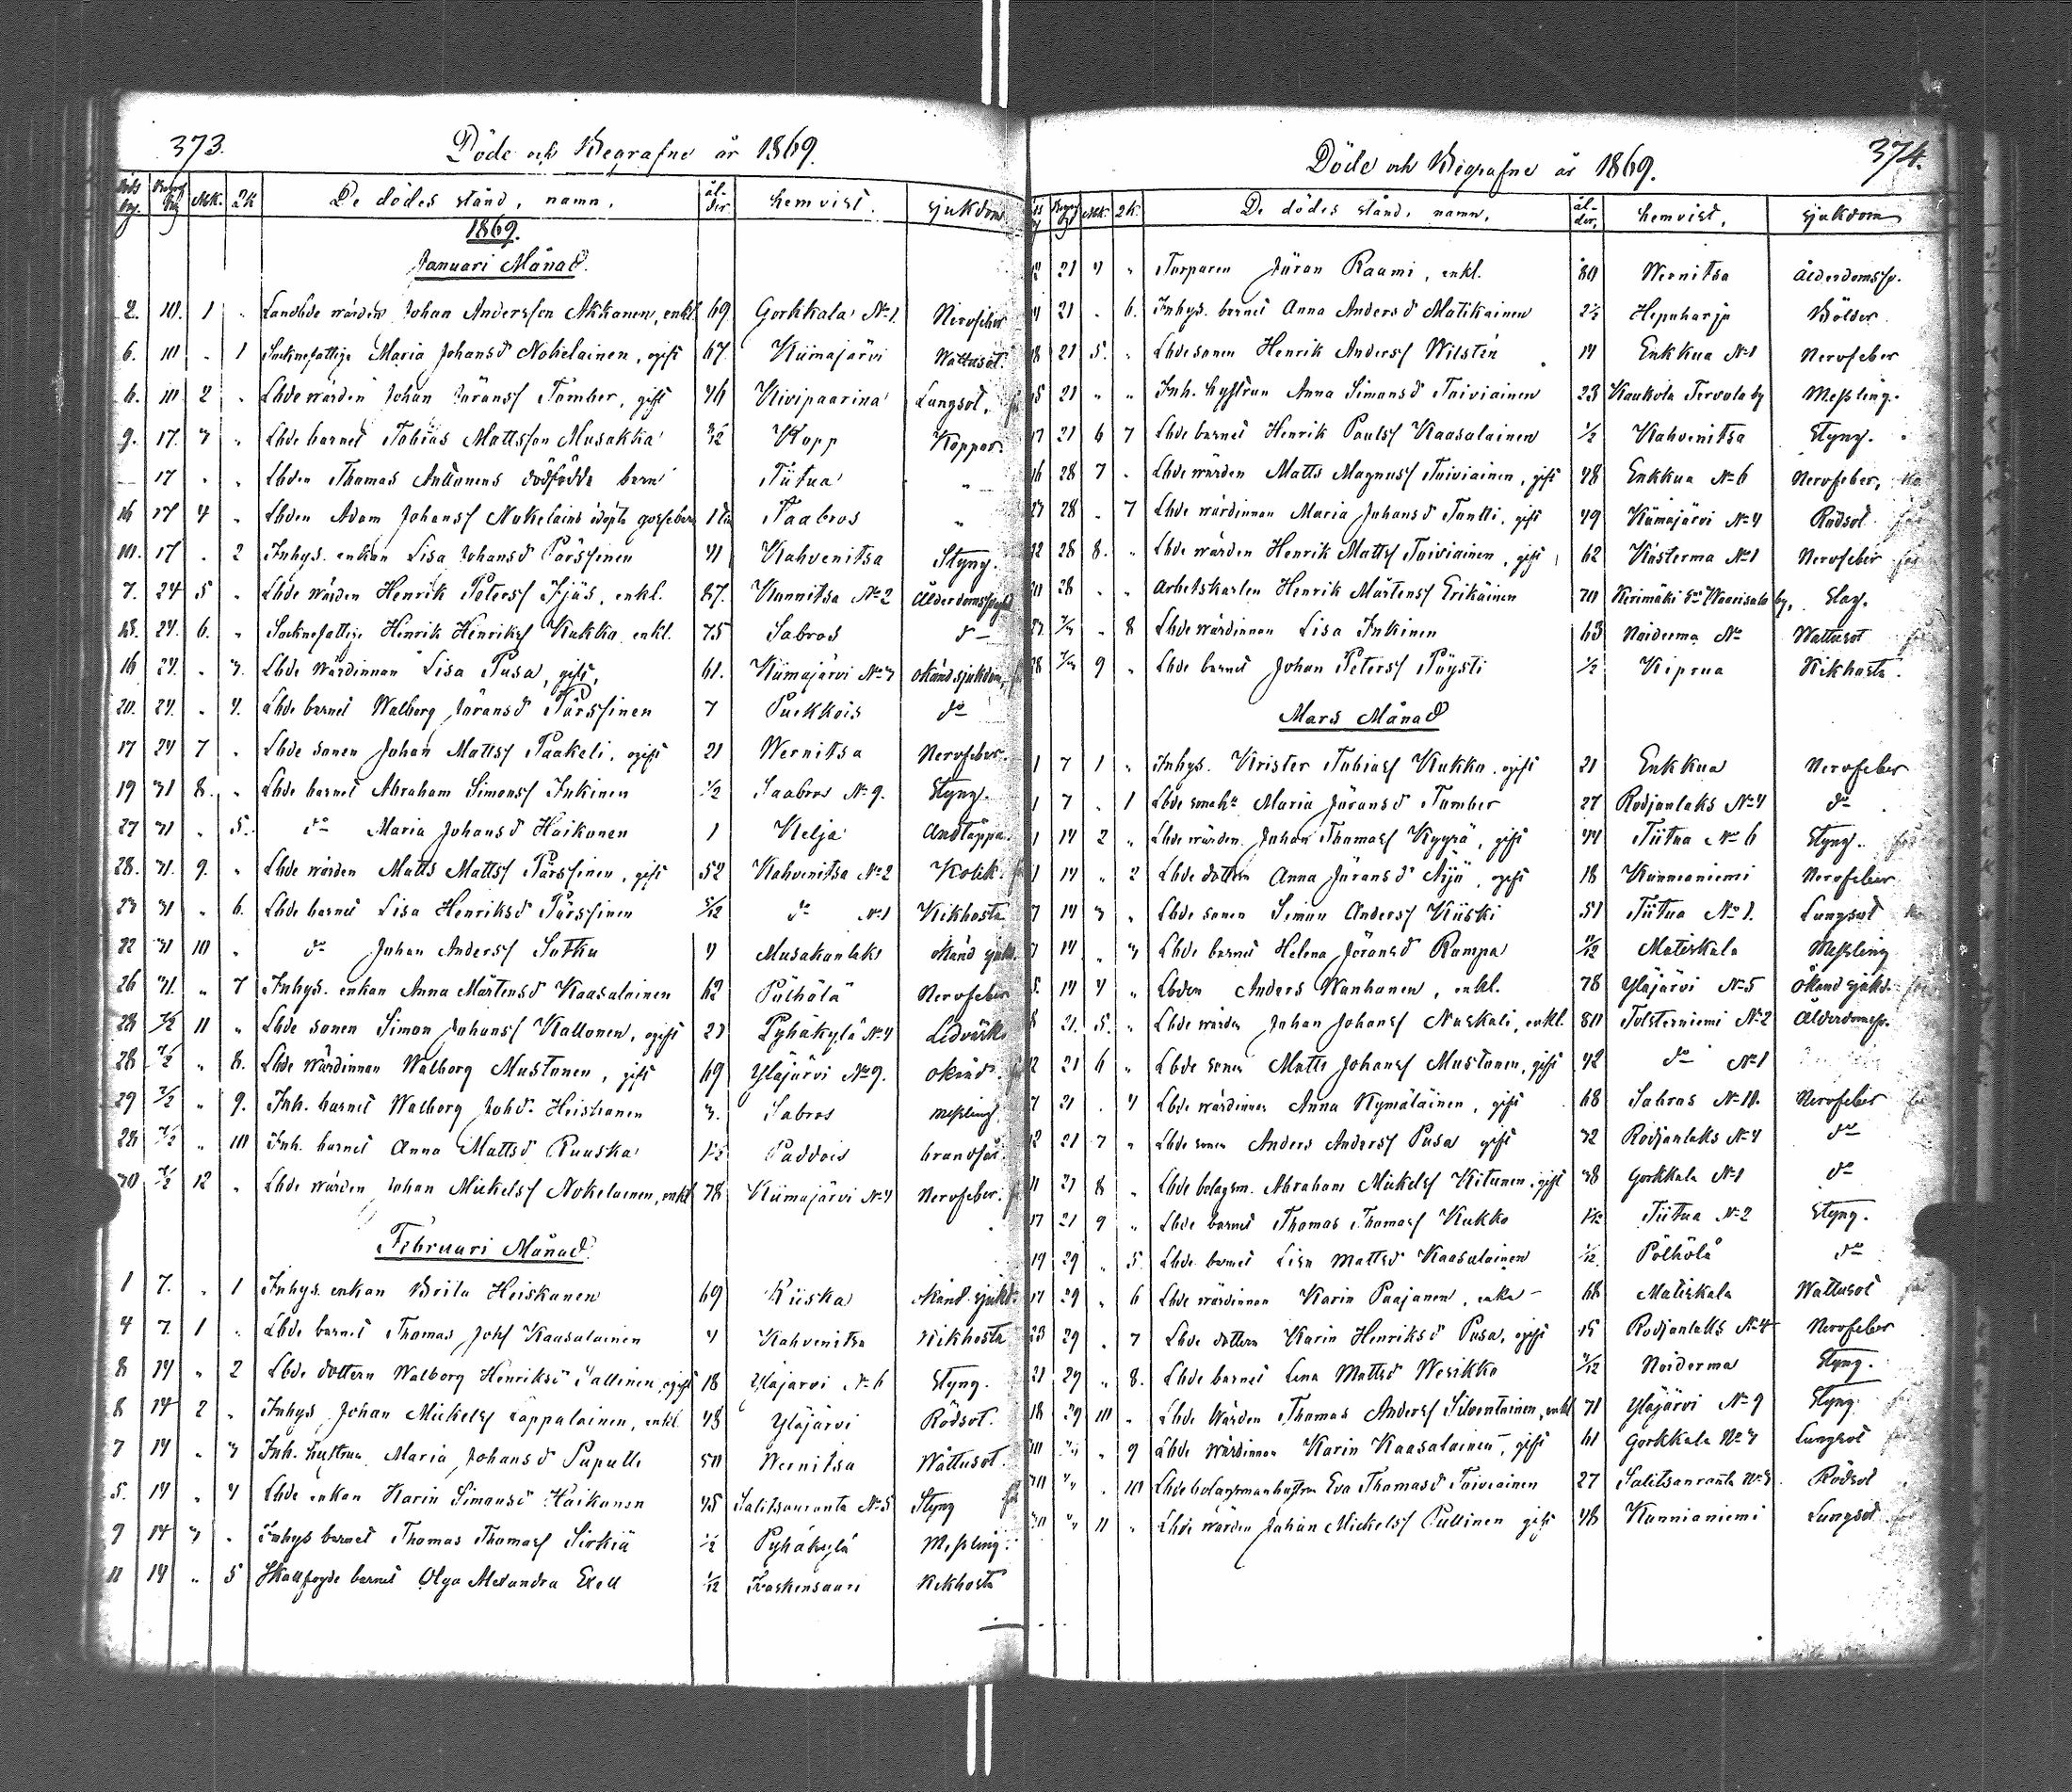 373.
Döde och Begrafne år 1869.
Mk. 2k De dödes stånd, namn. ålder hemvist. sjukdom
1869.
Januari Månad.
2. 10. 1 " Landbde wärden Johan Andersson Akkanen, enkl. 69 Gorkkala No 1. Nervfeber
6. 10 " 1 Socknefattige Maria Johansd Nokelainen, ogift 67. Kiimajärvi Wattusot.
6. 10 2 " Lbde wärden Johan Göransf Tamber, gift 46 Kivipaarina Lungsot.
9. 17. 3 " Lbde barnet Tobias Mattsson Musakka Kopp Koppor.
17 " " Lbden Thomas Anttonens dödfödde barn Tiitua "
16 17 4 " Lbden Adam Johansf Nokelains odöpta gossebarn Taabros "
10. 17 . 2 Inhys. enkan Lisa Johansd Pärssinen 71 Kahvenitsa Styng.
7. 24 5 " Lbde wärden Henrik Petersf Ijäs, enkl. 87. Kunnitsa No 2
18. 24. 6. " Socknefattige Henrik Henriksf Kukko enkl. 75 Sabros do
16 24. " 3. Lbde Wärdinnan Lisa Pusa, gift, 61. Kiimajärvi No 3 okänd sjukdom,
20. 24. " 4. Lbde barnet Walborg Göransd Pärssinen 7 Puikkois do
17 24 7 " Lbde sonen Johan Mattsf Paakeli, ogift 21 Wernitsa Nervfeber.
19 31 8. " Lbde barnet Abraham Simonsf Inkinen 1/2 Saabros No 9. Styng.
27 31 " 5. do Maria Johansd Haikonen 1 Kelja Andtäppa.
28. 31. 9. " Lbde wärden Matts Mattsf Pärssinen, gift 52 Kahvenitsa No 2 Kolik.
23 31 " 6. Lbde barnet Lisa Henriksd Pärssinen 5/12 do No 1 Kikhosta
22 31 10 " do Johan Andersf Sutku 4 Musakanlaks okänd sjukd.
26 31. " 7 Inhys. enkan Anna Mårtensd Kaasalainen 62 Pölhölä Nervfeber
28 7/2 11 " Lbde sonen Simon Johansf Kallonen, ogift 23 Pyhäkylä No 4 Ledvärk
28 7/2 " 8. Lbde Wärdinnan Walborg Mustonen, gift 69 Yläjärvi No 9. okänd.
29 7/2 " 9. Inh. barnet Walborg Johd. Heiskanen 3. Sabros Messling.
28 7/2 " 10 Inh. barnet Anna Mattsd Ruuska Paddois
30 7/2 12 " Lbde wärden Johan Mickelsf Nokelainen, enkl 78 Kiimajärvi No 4 Nervfeber.
Februari Månad.
1 7. " 1 Inhys. enkan Brita Heiskanen 69 Riiska okänd sjukd.
4 7. 1 " Lbde barnet Thomas Johsf Kaasalainen 4 Kahvenitsa Kikhosta
8 14 " 2 Lbde dottern Walborg Henriksd Pallinen, ogift 18 Yläjärvi No 6 Styng.
8 14 2 " Inhys. Johan Mickelsf Lappalainen, enkl. 48 Yläjärvi Rödsot.
7 14 " 3 Inh. hustrun Maria Johansd Puputti 50 Wernitsa Wattusot.
5. 14 " 4 Lbde enkan Karin Simonsd Haikonen 45 Salitsanranta No 5 Styng
9 14 3 . Inhys barnet Thomas Thomasf Sirkiä 1/2 Pyhäkylä Messling.
11 14 " 5 Skallfogde barnet Olga Alexandra Exell 1/12 Koskensaari Kikhosta
374.
Döde och Begrafne år 1869.
Mk. 2k. De dödes stånd, namn, ålder, hemvist, sjukdom
21 4 " Torparen Jöran Raami, enkl. 80 Wernitsa Ålderdomssv.
21 . 6. Inhys. barnet Anna Andersd Matikainen Hepoharju Bölder
21 5. " Lbde sonen Henrik Andersf Wilstén 14 Enkkua No 1 Nervfeber
21 " " Inh. hustrun Anna Simonsd Toiviainen 23 Kaukola Tervola by Messling.
21 6 7 Lbde barnet Henrik Paulsf Kaasalainen 1/2 Kahvenitsa Styng.
28 7 . Lbde wärden Matts Magnusf Toiviainen, gift 48 Enkkua No 6 Nervfeber,
28 . 7 Lbde wärdinnan Maria Johansd Tontti, gift 49 Kiimajärvi No 4 Rödsot
28 8. " Lbde wärden Henrik Mattsf Toiviainen, gift 62 Kasterma No 1 Nervfeber
28 " " Arbetskarlen Henrik Mårtensf Erikäinen 70 Kerimäki Sn Waarisalo by, Slag.
" 8 Lbde wärdinnan Lisa Inkinen 63 Noiderma No Wattusot
9 " Lbde barnet Johan Petersf Pöysti 1/2 Kiprua Kikhosta.
Mars Månad
1 7 1 " Inhys. Krister Tobiasf Kukko, ogift 21 Enkkua Nervfeber
1 7 . 1 Lbde Maria Jöransd Tamber 27 Rodjanlaks No 4 do
1 14 2 " Lbde wärden Johan Thomasf Kyyrä, gift 44 Tiitua No 6 Styng.
1 14 " 2 Lbde dottern Anna Jöransd Äijö, ogift 18 Kunnianiemi Nervfeber
7 14 3 " Lbde sonen Simon Andersf Kiiski 51 Tiitua No 1. Lungsot
14 " 3 Lbde barnet Helena Jöransd Rampa Matiskala Messling
5. 14 4 " Lbden Anders Wanhanen, enkl. 78 Yläjärvi No 5 Okänd sjukd.
8 21. 5. " Lbde wärden Johan Johansf Naskali, enkl. 80 Tolsterniemi No 2 Ålderdomssv.
12 21 6 " Lbde sonen Matts Johansf Mustonen, gift 42 do No 1
7 21 . 4 Lbde wärdinnan Anna Kymäläinen, gift 68 Sabros No 10. Nervfeber
12 21 7 " Lbde sonen Anders Andersf Pusa gift 32 Rodjanlaks No 4 do
11 21 8 " Lbde bolagsm. Abraham Mickelsf Kitunen, gift 38 Gorkkala No 1 do
17 21 9 " Lbde barnet Thomas Thomasf Kukko Tiitua No 2 Styng.
19 29 " 5. Lbde barnet Lisa Mattsd Kaasalainen Pölhölä do
17 29 " 6 Lbde wärdinnan Karin Paajanen, enka 68 Matiskala Wattusot
23 29 . 7 Lbde dottern Karin Henriksd Pusa, ogift 15 Rodjanlaks No 4 Nervfeber
21 29 " 8. Lbde barnet Lena Mattsd Wesikko Noiderma Styng.
18 29 10 " Lbde Wärden Thomas Andersf Silventoinen, enkl 71 Yläjärvi No 9 Styng.
" 9 Lbde wärdinnan Karin Kaasalainen, gift 61 Gorkkala No 3 Lungsot
. 10 Lbde bolagsmanhustrun Eva Thomasd Toiviainen 27 Salitsanranta No 3 Rödsot
11 " Lbde wärden Johan Mickelsf Pullinen gift 48 Kunnianiemi Lungsot